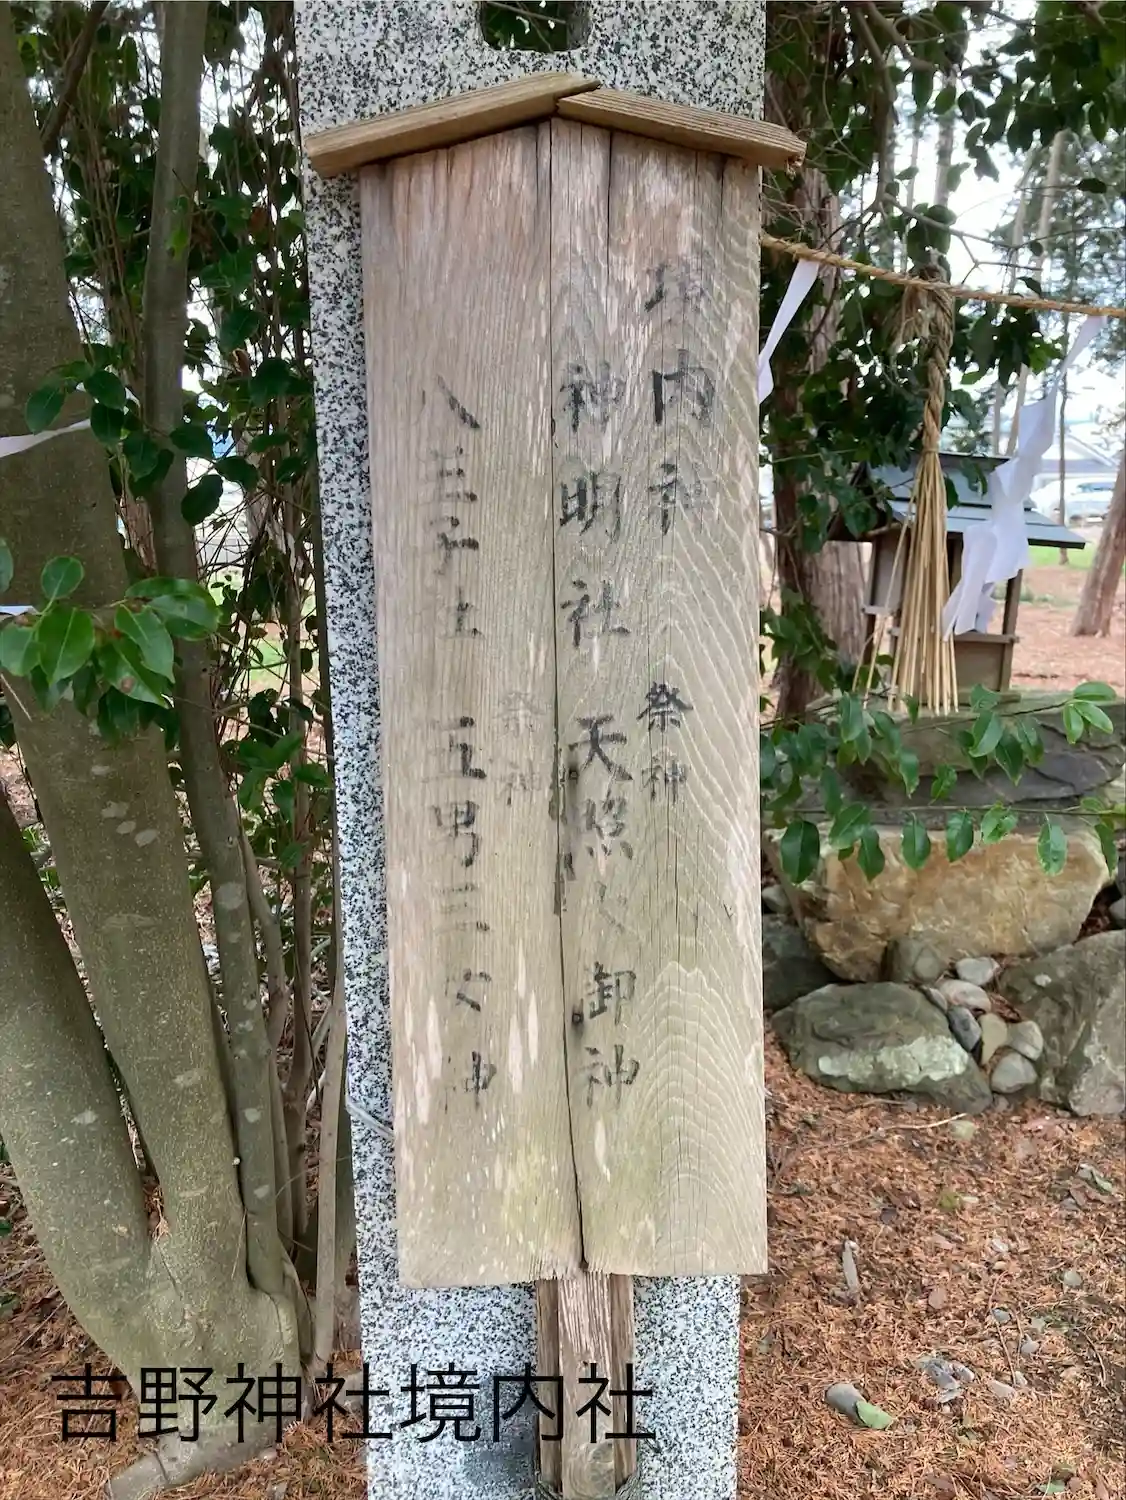 境内社 祭神
神明社 天照大御神
祭神
八王子社 五男三女神
吉野神社境内社